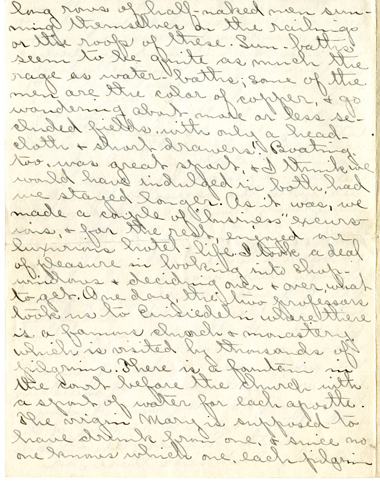 long rows of half-naked men sun-
ning themselves on the railings
or the roofs of these. Sun-baths
seem to be quite as much the
rage as water-baths; some of the
men are the color of copper, & go
wandering about more or less se-
cluded fields, with only a head-
cloth & short drawers! Boating
too, was great sport, & I think we
would have indulged in both, had
we stayed longer. As it was, we
made a couple of "business" excurs-
ions, & for the rest, enjoyed our
luxurious hotel-life. I took a deal
of pleasure in looking into shop-
windows & deciding over & over, what
to get. One day, the two professors
took us to Einsiedeln where there
is a famous church & monastery
which is visited by thousands of
pilgrims. There is a fountain in
the court before the church with
a spout of water for each apostle.
The virgin Mary is supposed to
have drunk from one, & since no-
one knows which one, each pilgrim